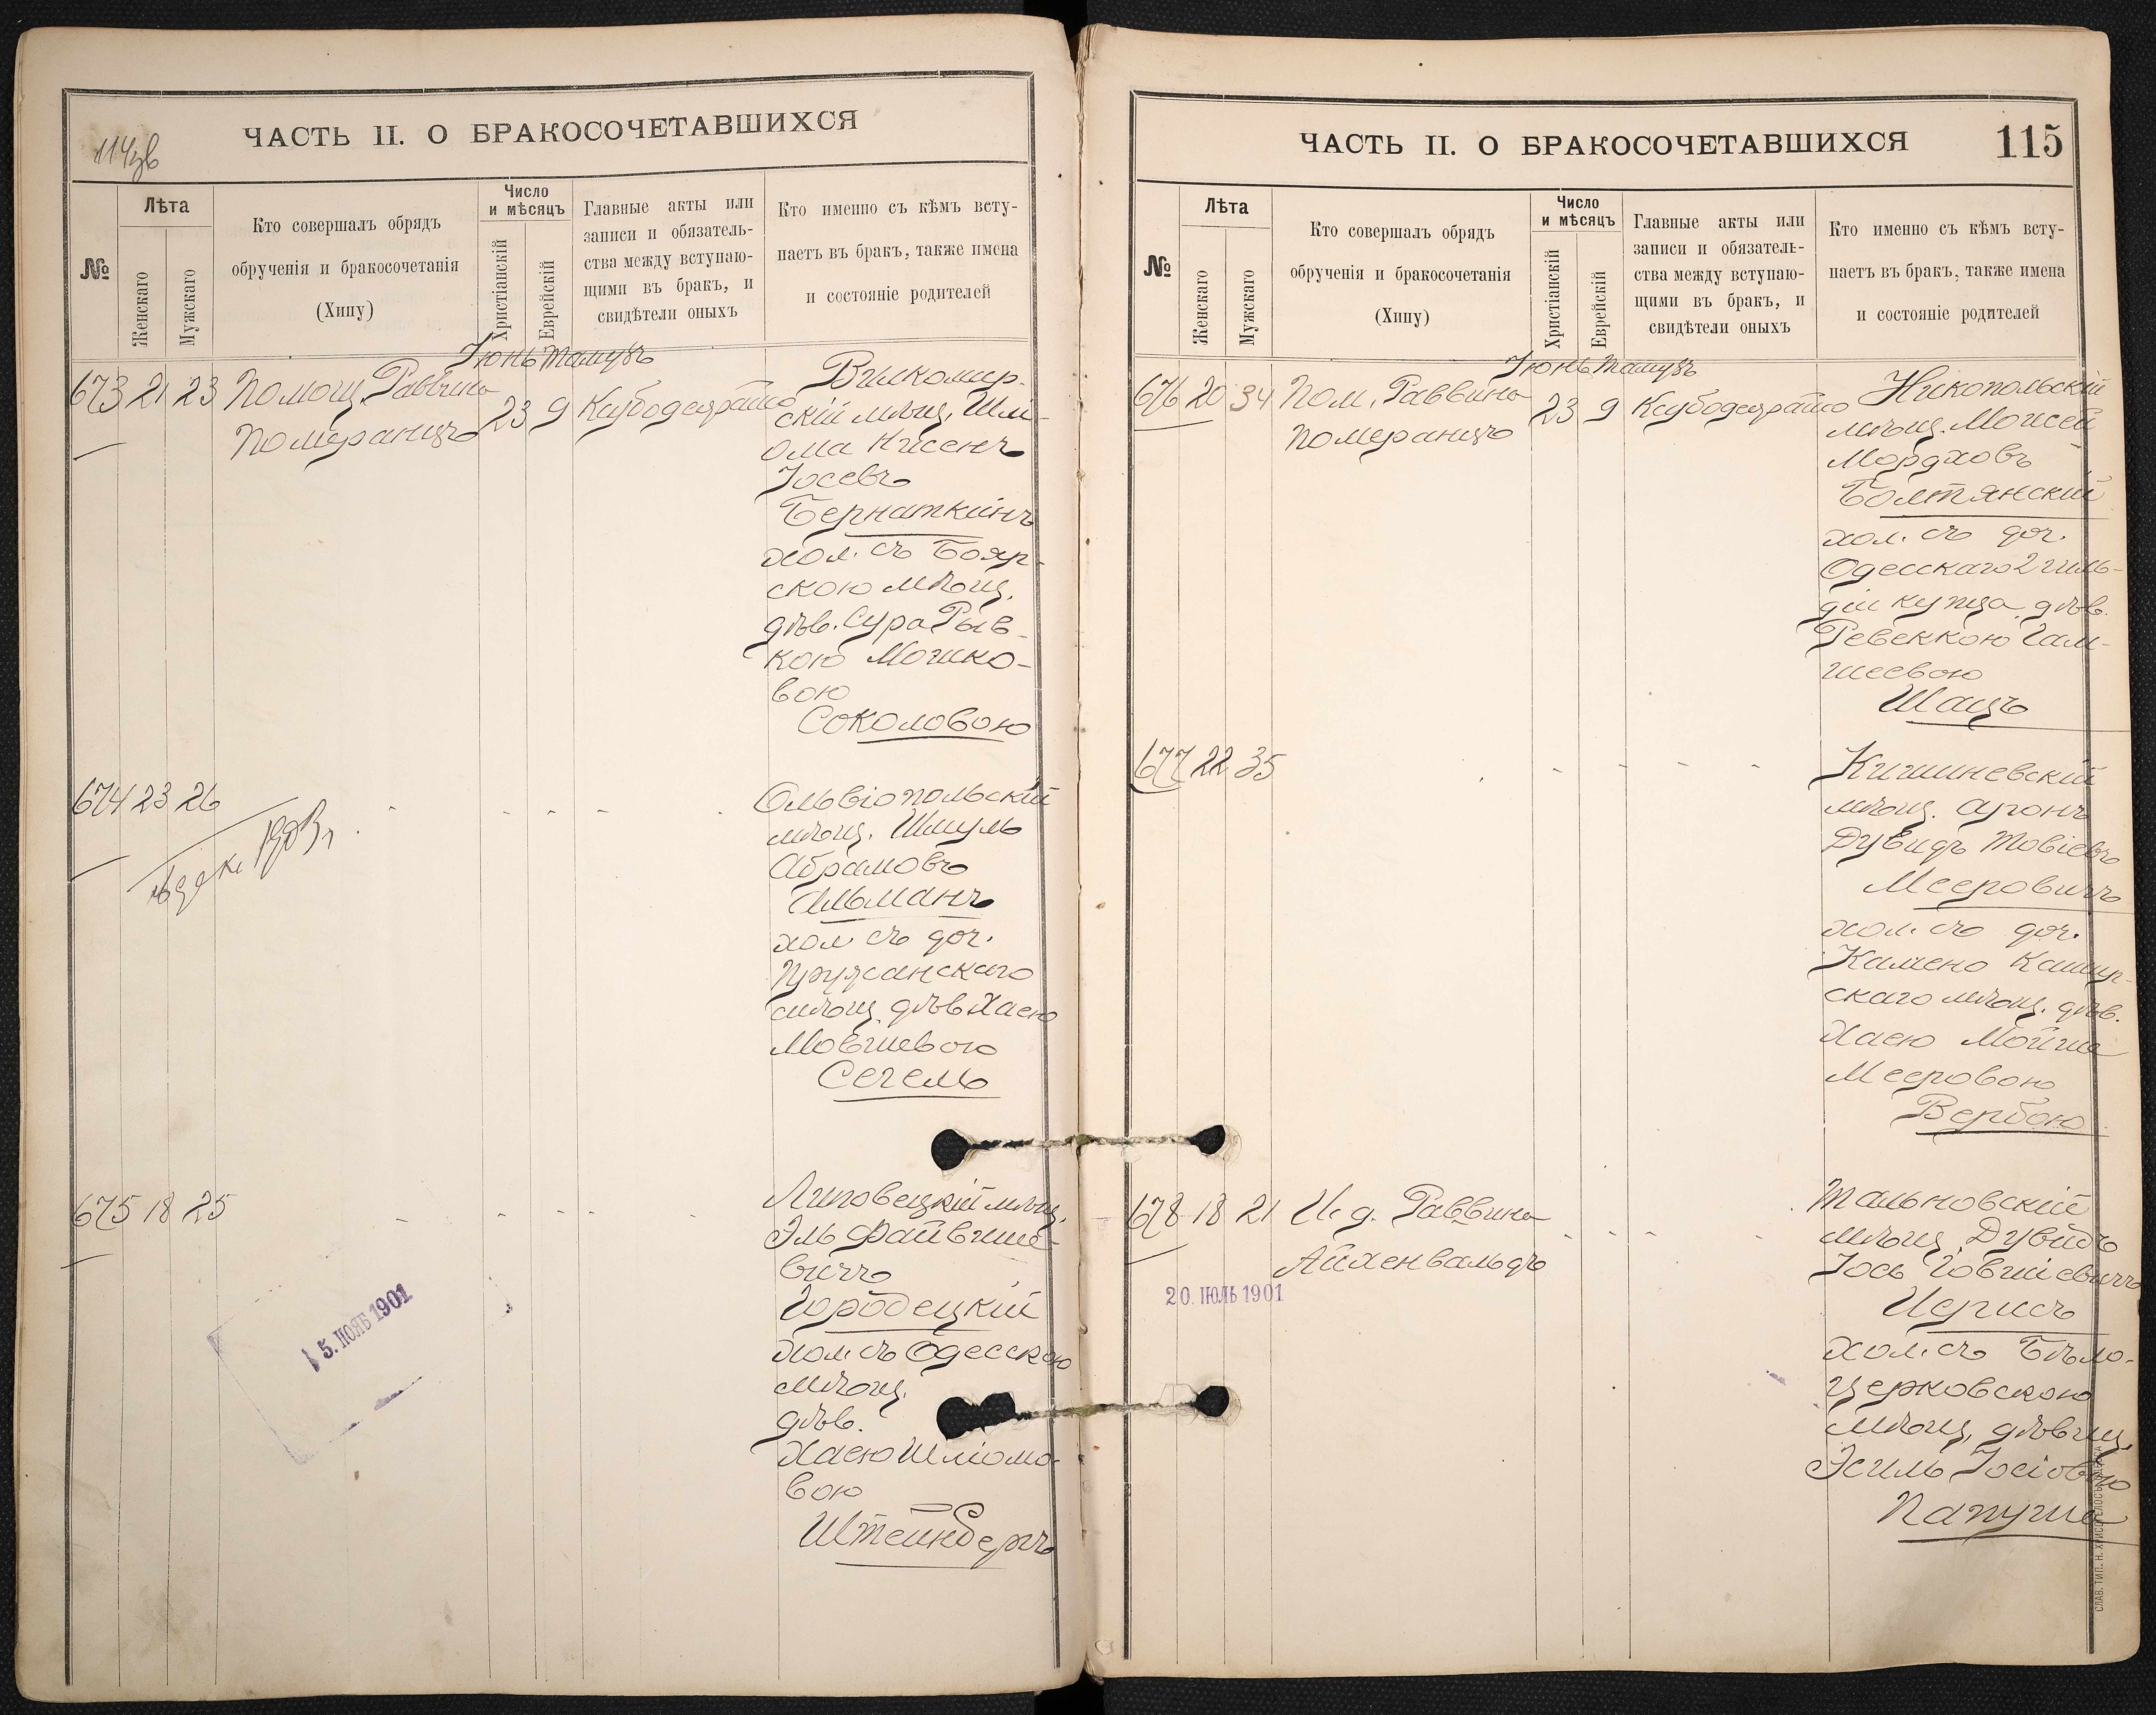 114 об
ЧАСТЬ II. О БРАКОСОЧЕТАВШИХСЯ
№
Лѣта
Женскаго
Мужскаго
Кто совершалъ обрядъ
обрученія и бракосочетанія
(Хипу)
Число
и мѣсяцъ
Христіанскій
Еврейскій
Главные акты или
записи и обязатель-
ства между вступаю-
щими въ бракъ, и
свидѣтели оныхъ
Кто именно съ кѣмъ всту-
паетъ въ бракъ, также имена
и состояніе родителей
Іюнь Тамузъ
673 21 23 Помощ. Раввина
Померанцъ
23 9
Вилкомир-
скій мѣщ. Шлі-
ома Нисенъ
Іосевъ
Бернаткинъ
хол. съ Бояр-
скою мѣщ.
дѣв. Сура Рыв-
кою Мошко-
вою
Соколовою
674 23 26 - - - -
1903 г.
Ольвіопольскій
мѣщ. Шмуль
Абрамовъ
Альманъ
хол съ доч.
Пружанскаго
мѣщ дѣв Хаею
Мовшевою
Сегель
675 18 25 - - - -
Липовецкій мѣщ.
Эль Файвише-
вичъ
Городецкій
хол. съ Одесскою
мѣщ.
дѣв.
Хаею Шліомо-
вою
Штейнбергъ
15. НОЯБ 1901
ЧАСТЬ II. О БРАКОСОЧЕТАВШИХСЯ
115
№
Лѣта
Женскаго
Мужскаго
Кто совершалъ обрядъ
обрученія и бракосочетанія
(Хипу)
Число
и мѣсяцъ
Христіанскій
Еврейскій
Главные акты или
записи и обязатель-
ства между вступаю-
щими въ бракъ, и
свидѣтели оныхъ
Кто именно съ кѣмъ всту-
паетъ въ бракъ, также имена
и состояніе родителей
Іюнь Тамузъ
676 20 34 Пом. Раввина
Померанцъ
23 9
Никопольскій
мѣщ. Моисей
Мордховъ
Болтянскій
хол. съ доч.
Одесскаго 2 гиль-
діи купца дѣв.
Ревеккою Гам-
шеевою
Шацъ
677 22 35 - - - -
Кишиневскій
мѣщ. Аронъ
Дувидъ Товіевъ
Мееровичъ
хол. съ доч.
Камено Кашир-
скаго мѣщ. дѣв.
Хаею Мойше
Мееровою
Вербою
678 18 21 И. д. Раввина
Айхенвальдъ
- - - -
20. ІЮЛЬ 1901
Тальновскій
мѣщ. Дувидъ
Іось Говшіевичъ
Черисъ
хол. съ Бѣло-
церковскою
мѣщ. дѣвиц.
Эсиль Іосіовою
Папуша